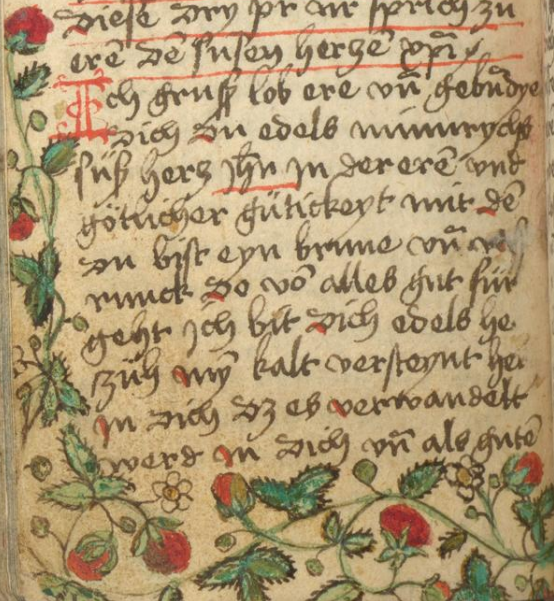 diese dry pr nr sprich zu
erē dē susen herzē xp̄i
Ich gruss lob ere vn̄ gebn̄dye
dich du edels minnrychs
süß herz ih̄u in der erē vnd
götlicher gütickeyt mit dē
du bist eyn brunne vn̄
runck do vō alles gut für
geht ich bit dich edels he
züh my̅ kalt versteynt her
in dich dz es verwandelt
werd in dich vn̄ als gute